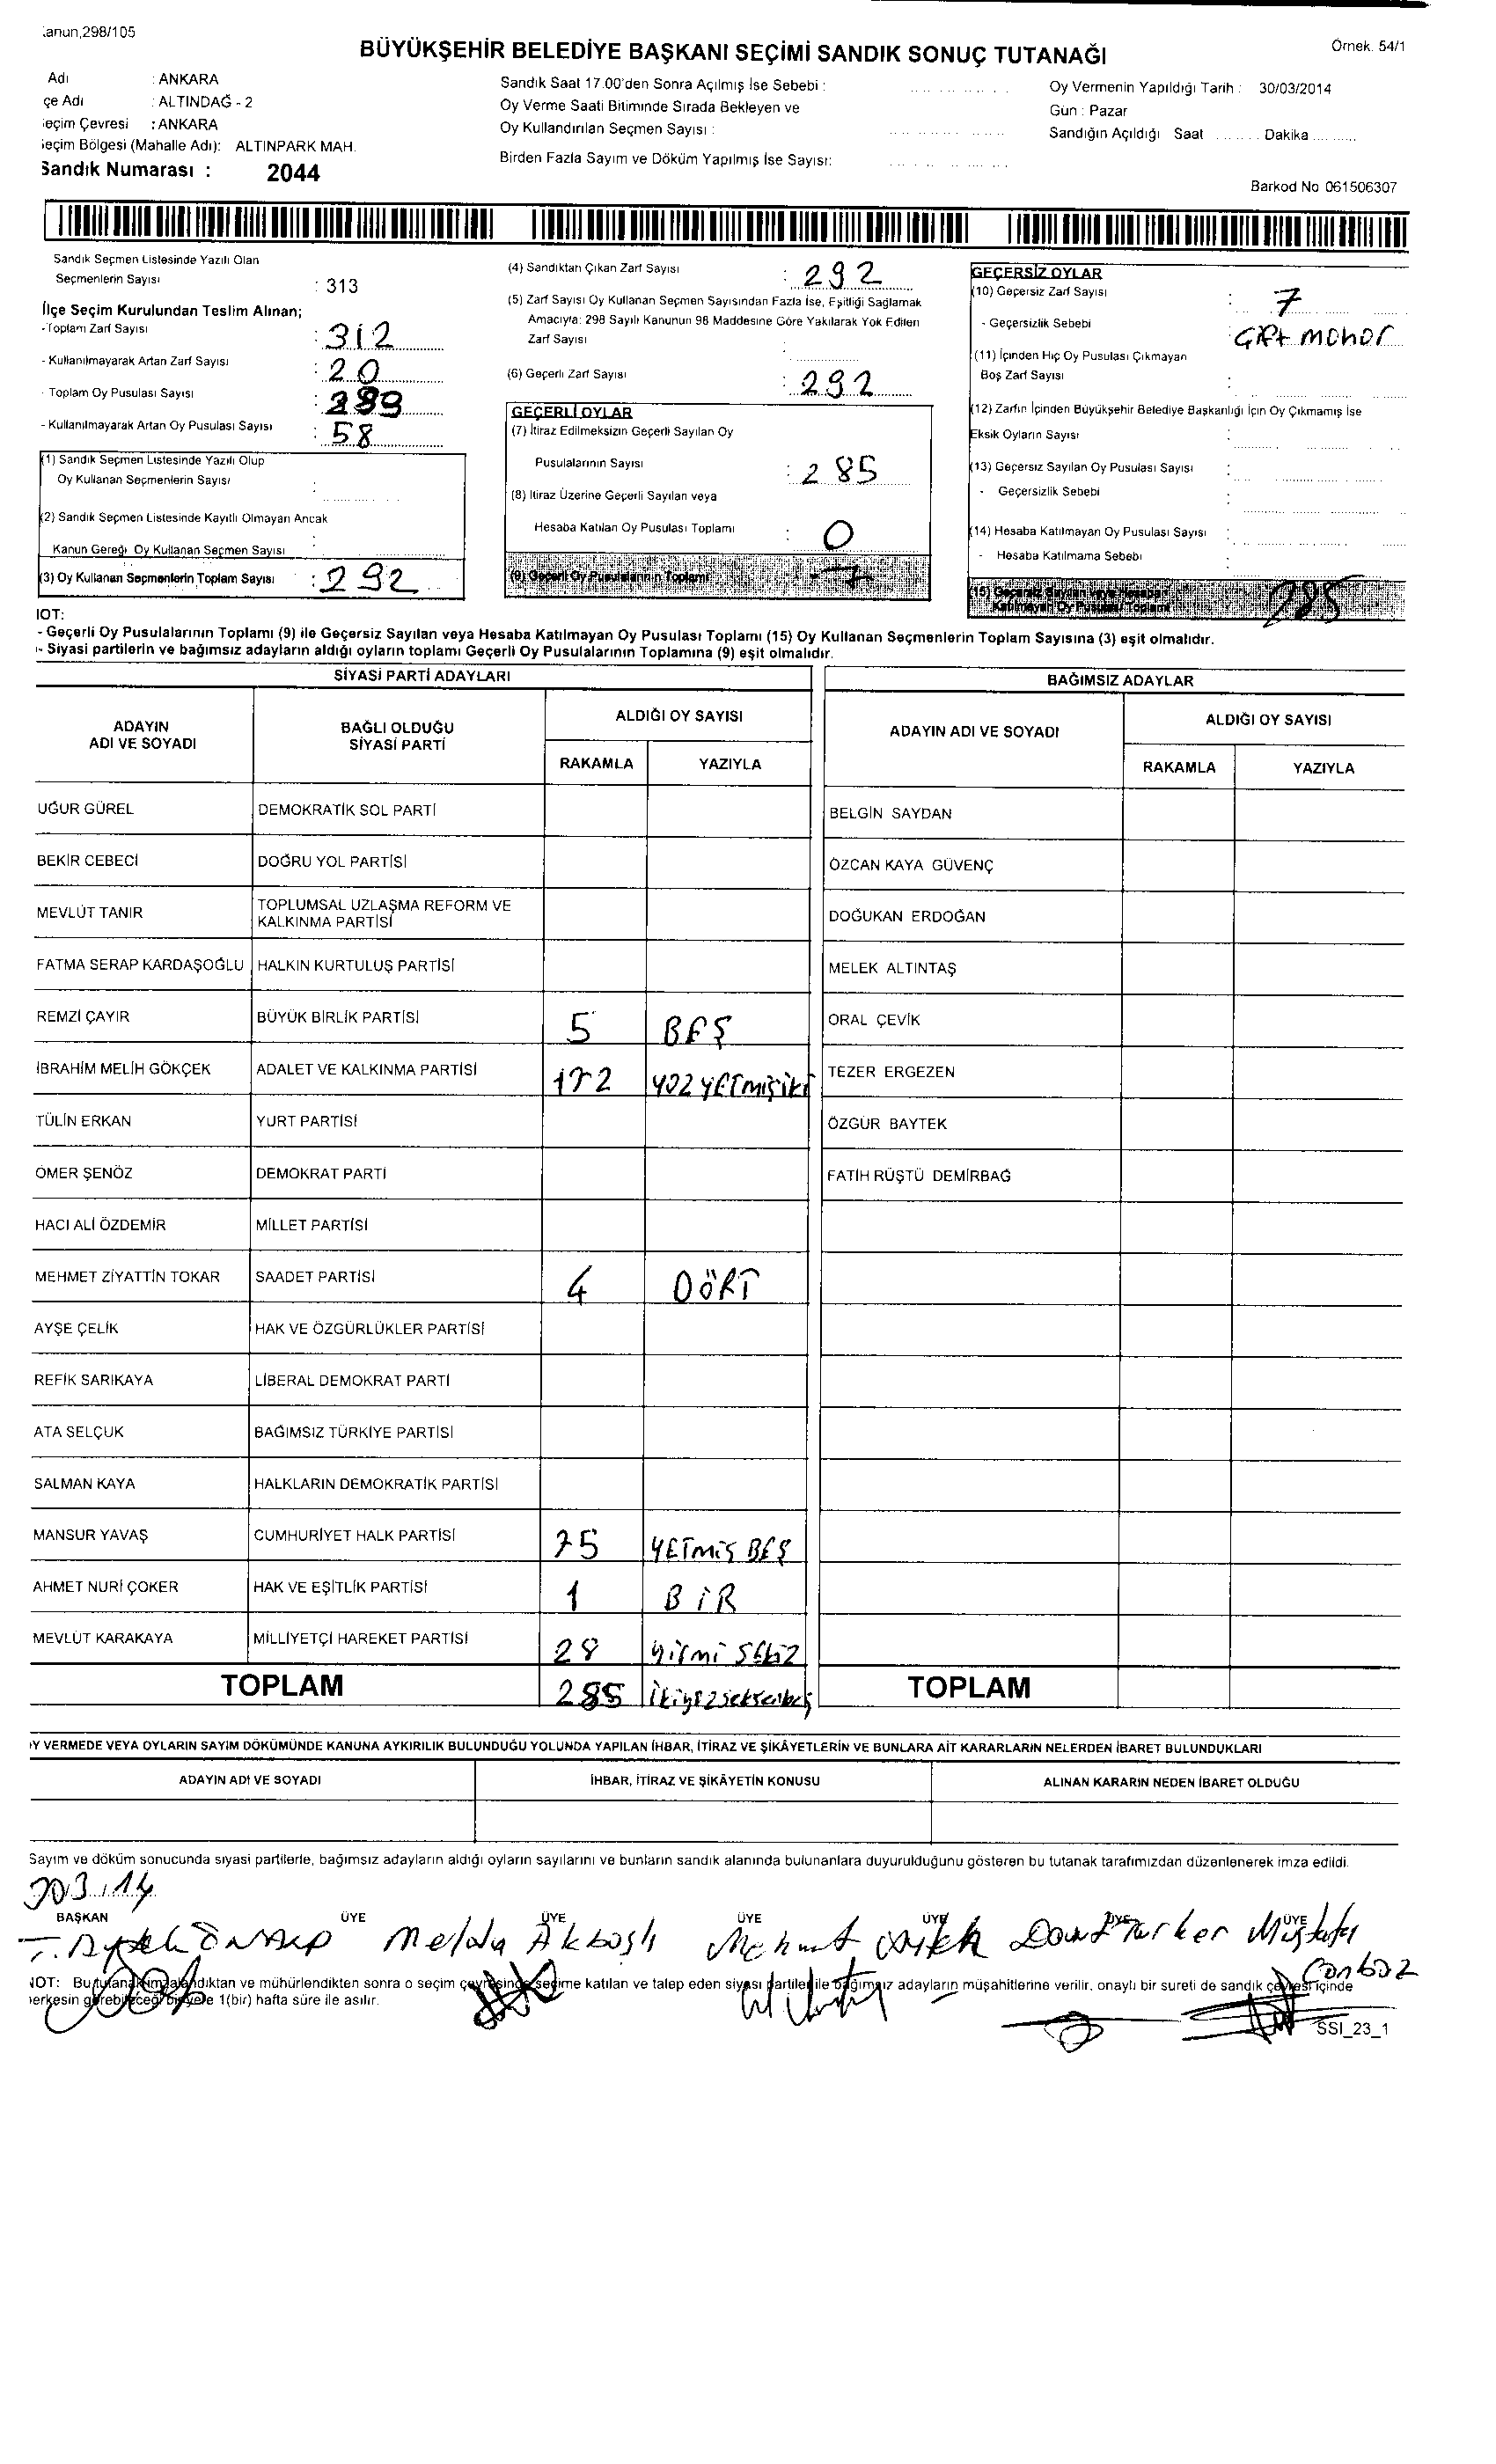 anun,298/105
BÜYÜKŞEHİR BELEDİYE BAŞKANI SEÇİMİ SANDIK SONUÇ TUTANAĞI
Örnek. 54/1
Adı : ANKARA
çe Adı : ALTINDAĞ - 2
eçim Çevresi : ANKARA
eçim Bölgesi (Mahalle Adı): ALTINPARK MAH.
Sandık Numarası : 2044
Sandık Saat 17.00'den Sonra Açılmış İse Sebebi :
Oy Verme Saati Bitiminde Sırada Bekleyen ve
Oy Kullandırılan Seçmen Sayısı :
Birden Fazla Sayım ve Döküm Yapılmış İse Sayısı:
Oy Vermenin Yapıldığı Tarih : 30/03/2014
Gün : Pazar
Sandığın Açıldığı Saat ........ Dakika ..........
Barkod No 061506307
Sandık Seçmen Listesinde Yazılı Olan
Seçmenlerin Sayısı : 313
İlçe Seçim Kurulundan Teslim Alınan;
-Toplam Zarf Sayısı : 312
- Kullanılmayarak Artan Zarf Sayısı : 20
- Toplam Oy Pusulası Sayısı :
- Kullanılmayarak Artan Oy Pusulası Sayısı : 58
(1) Sandık Seçmen Listesinde Yazılı Olup
Oy Kullanan Seçmenlerin Sayısı :
(2) Sandık Seçmen Listesinde Kayıtlı Olmayan Ancak
Kanun Gereği Oy Kullanan Seçmen Sayısı :
(3) Oy Kullanan Seçmenlerin Toplam Sayısı : 292
(4) Sandıktan Çıkan Zarf Sayısı : 292
(5) Zarf Sayısı Oy Kullanan Seçmen Sayısından Fazla İse, Eşitliği Sağlamak
Amacıyla: 298 Sayılı Kanunun 98 Maddesine Göre Yakılarak Yok Edilen
Zarf Sayısı :
(6) Geçerli Zarf Sayısı : 292
GEÇERLİ OYLAR
(7) İtiraz Edilmeksizin Geçerli Sayılan Oy
Pusulalarının Sayısı : 285
(8) İtiraz Üzerine Geçerli Sayılan veya
Hesaba Katılan Oy Pusulası Toplamı : 0
(9) Geçerli Oy Pusulalarının Toplamı : 7
GEÇERSİZ OYLAR
(10) Geçersiz Zarf Sayısı : 7
- Geçersizlik Sebebi : Çift mühür
(11) İçinden Hiç Oy Pusulası Çıkmayan
Boş Zarf Sayısı :
(12) Zarfın İçinden Büyükşehir Belediye Başkanlığı İçin Oy Çıkmamış İse
Eksik Oyların Sayısı :
(13) Geçersiz Sayılan Oy Pusulası Sayısı :
- Geçersizlik Sebebi :
(14) Hesaba Katılmayan Oy Pusulası Sayısı :
- Hesaba Katılmama Sebebi :
(15) Geçersiz Sayılan veya Hesaba
Katılmayan Oy Pusulası Toplamı 285
IOT:
- Geçerli Oy Pusulalarının Toplamı (9) ile Geçersiz Sayılan veya Hesaba Katılmayan Oy Pusulası Toplamı (15) Oy Kullanan Seçmenlerin Toplam Sayısına (3) eşit olmalıdır.
- Siyasi partilerin ve bağımsız adayların aldığı oyların toplamı Geçerli Oy Pusulalarının Toplamına (9) eşit olmalıdır.
SİYASİ PARTİ ADAYLARI
BAĞIMSIZ ADAYLAR
ADAYIN ADI VE SOYADI
BAĞLI OLDUĞU SİYASİ PARTİ
ALDIĞI OY SAYISI
RAKAMLA YAZIYLA
ADAYIN ADI VE SOYADI
ALDIĞI OY SAYISI
RAKAMLA YAZIYLA
UĞUR GÜREL DEMOKRATİK SOL PARTİ BELGİN SAYDAN
BEKİR CEBECİ DOĞRU YOL PARTİSİ ÖZCAN KAYA GÜVENÇ
MEVLÜT TANIR TOPLUMSAL UZLAŞMA REFORM VE KALKINMA PARTİSİ DOĞUKAN ERDOĞAN
FATMA SERAP KARDAŞOĞLU HALKIN KURTULUŞ PARTİSİ MELEK ALTINTAŞ
REMZİ ÇAYIR BÜYÜK BİRLİK PARTİSİ 5 BEŞ ORAL ÇEVİK
İBRAHİM MELİH GÖKÇEK ADALET VE KALKINMA PARTİSİ 172 YÜZ YETMİŞ İKİ TEZER ERGEZEN
TÜLİN ERKAN YURT PARTİSİ ÖZGÜR BAYTEK
ÖMER ŞENÖZ DEMOKRAT PARTİ FATİH RÜŞTÜ DEMİRBAĞ
HACI ALİ ÖZDEMİR MİLLET PARTİSİ
MEHMET ZİYATTİN TOKAR SAADET PARTİSİ 4 DÖRT
AYŞE ÇELİK HAK VE ÖZGÜRLÜKLER PARTİSİ
REFİK SARIKAYA LİBERAL DEMOKRAT PARTİ
ATA SELÇUK BAĞIMSIZ TÜRKİYE PARTİSİ
SALMAN KAYA HALKLARIN DEMOKRATİK PARTİSİ
MANSUR YAVAŞ CUMHURİYET HALK PARTİSİ 75 YETMİŞ BEŞ
AHMET NURİ ÇOKER HAK VE EŞİTLİK PARTİSİ 1 BİR
MEVLÜT KARAKAYA MİLLİYETÇİ HAREKET PARTİSİ 28 yirmi sekiz
TOPLAM 285 ikiyüzseksenbeş TOPLAM
Y VERMEDE VEYA OYLARIN SAYIM DÖKÜMÜNDE KANUNA AYKIRILIK BULUNDUĞU YOLUNDA YAPILAN İHBAR, İTİRAZ VE ŞİKÂYETLERİN VE BUNLARA AİT KARARLARIN NELERDEN İBARET BULUNDUKLARI
ADAYIN ADI VE SOYADI İHBAR, İTİRAZ VE ŞİKÂYETİN KONUSU ALINAN KARARIN NEDEN İBARET OLDUĞU
Sayım ve döküm sonucunda siyasi partilerle, bağımsız adayların aldığı oyların sayılarını ve bunların sandık alanında bulunanlara duyurulduğunu gösteren bu tutanak tarafımızdan düzenlenerek imza edildi.
BAŞKAN ÜYE ÜYE ÜYE ÜYE ÜYE ÜYE
Melda Akbaşlı Mehmet Mustafa
Canbaz
IOT: Bu tutanak imzalandıktan ve mühürlendikten sonra o seçim çevresinde seçime katılan ve talep eden siyasi partiler ile bağımsız adayların müşahitlerine verilir, onaylı bir sureti de sandık çevresi içinde
herkesin görebileceği bir yere 1(bir) hafta süre ile asılır.
SSI_23_1